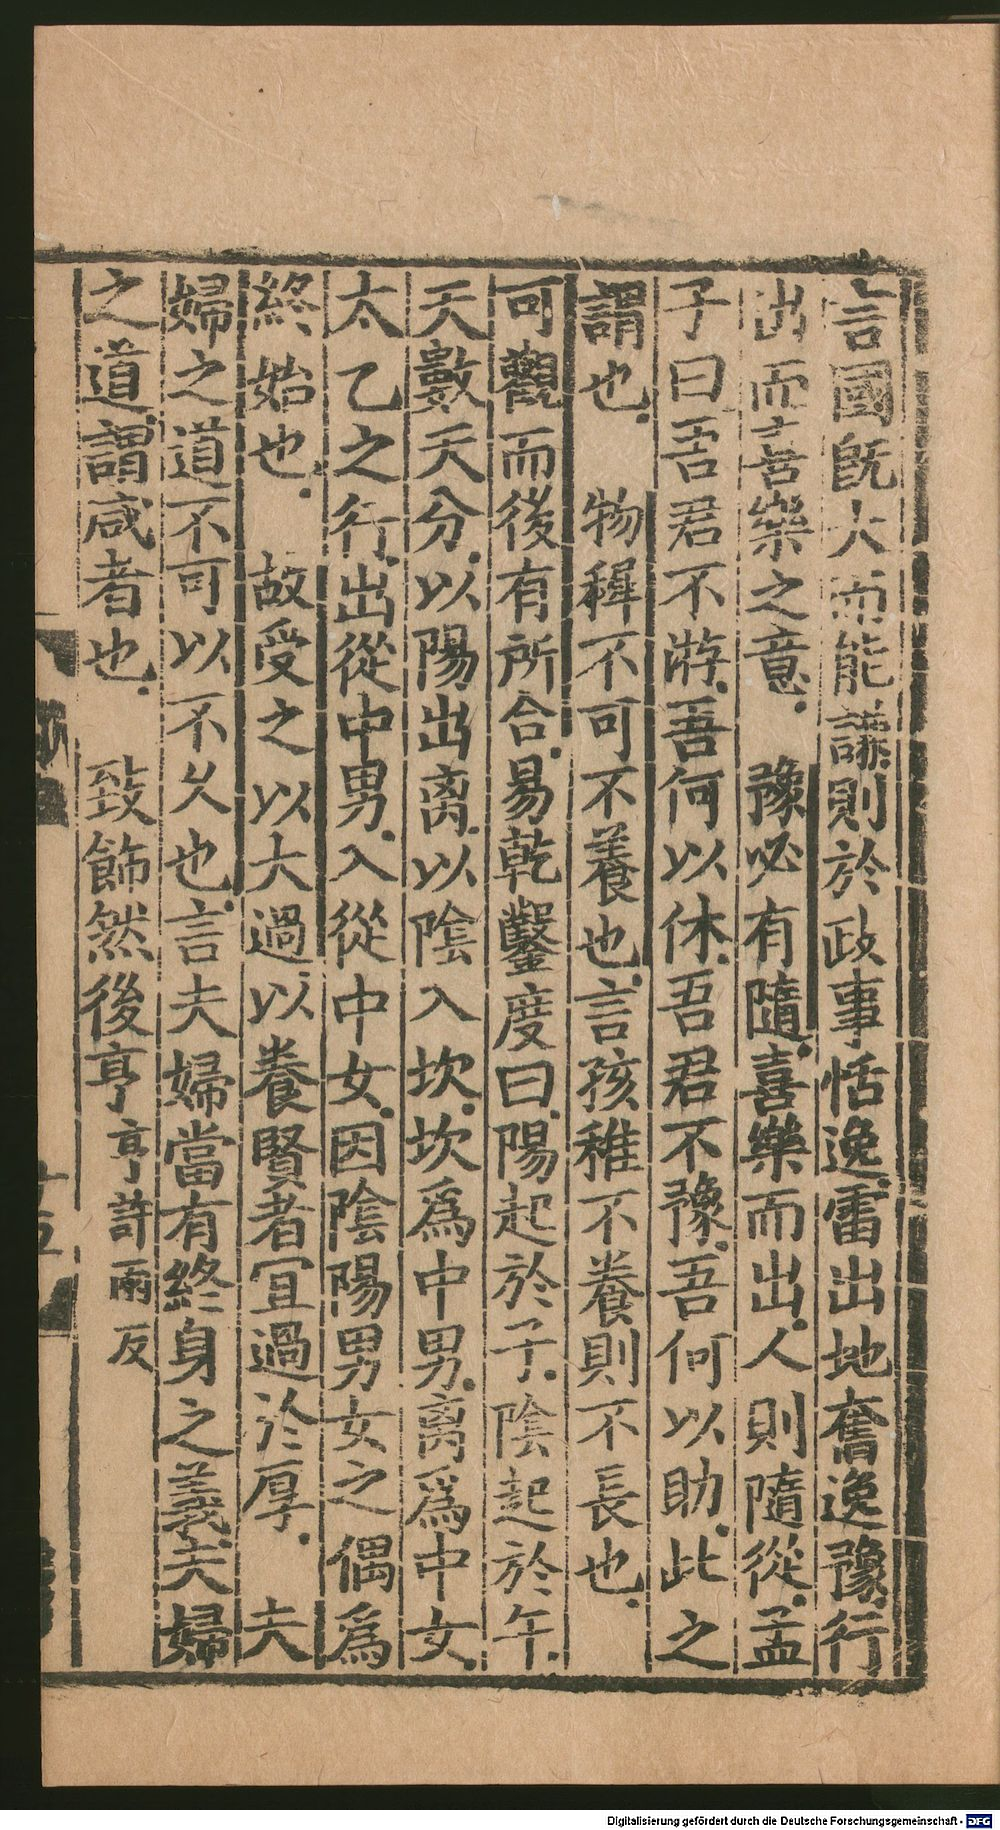 言國旣大而能謙則於政事恬逸雷出地奮逸豫行
出而喜樂之意．　豫必有隨喜樂而出人則隨從孟
子曰吾君不游吾何以休吾君不豫吾何以助此之
謂也．　物稺不可不養也言孩稚不養則不長也．
可觀而後有所合易乾鑿度曰陽起於子．陰起於午．
天數天分．以陽出离．以陰入坎．坎爲中男．离爲中女．
太乙之行．出從中男．入從中女．因陰陽男女之偶爲
終始也．　故受之以大過以養賢者宜過於厚．　夫
婦之道不可以不久也言夫婦當有終身之義夫婦
之道謂咸者也．　致飾然後亨亨許兩反
十五
Digitalisierung gefördert durch die Deutsche Forschungsgemeinschaft - DFG